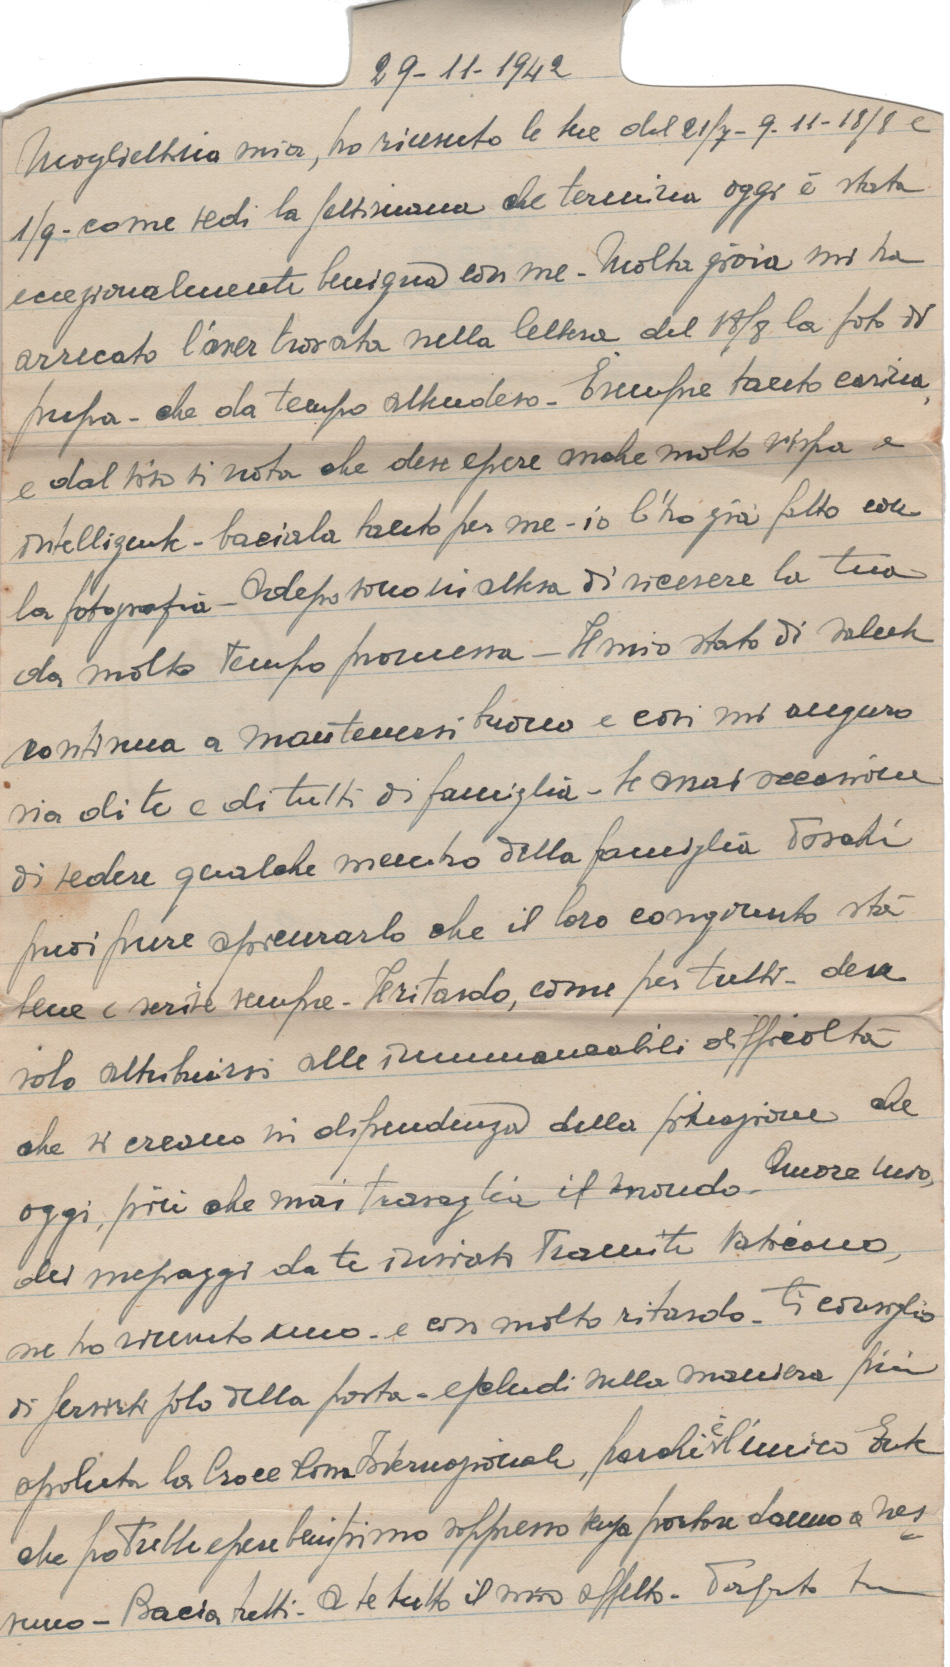 29-11-1942
Mogliettina mia, ho ricevuto le tue del 21/7-9-11-18/8 e
1/9-come vedi la settimana che termina oggi è stata
eccezionalmente benigna con me-Molta gioia mi ha
arrecato l'aver trovata nella lettera del 18/8 la foto di
pupa-che da tempo attendevo-È sempre tanto carina,
e dal viso si nota che deve essere anche molto vispa e
intelligente-baciala tanto per me-io l'ho già fatto con
la fotografia-Adesso sono in attesa di ricevere la tua
da molto tempo promessa-Il mio stato di salute
continua a mantenersi buono e così mi auguro
sia di te e di tutti di famiglia-Se mai occasione
di vedere qualche membro della famiglia
puoi pure assicurarlo che il loro congiunto sta
bene e scrive sempre-Il ritardo, come per tutti-deve
solo attribuirsi alle immancabili difficoltà
che si creano in dipendenza della situazione che
oggi, più che mai travaglia il mondo-Amore mio,
dei messaggi da te inviati tramite Vaticano,
ne ho ricevuto uno-e con molto ritardo-Ti consiglio
di servirti solo della posta-escludi nella maniera più
assoluta la Croce Rossa Internazionale, perchè è l'unico Ente
che potrebbe essere benissimo soppresso senza portare danno a nes-
suno-Bacia tutti-A te tutto il mio affetto- tuo